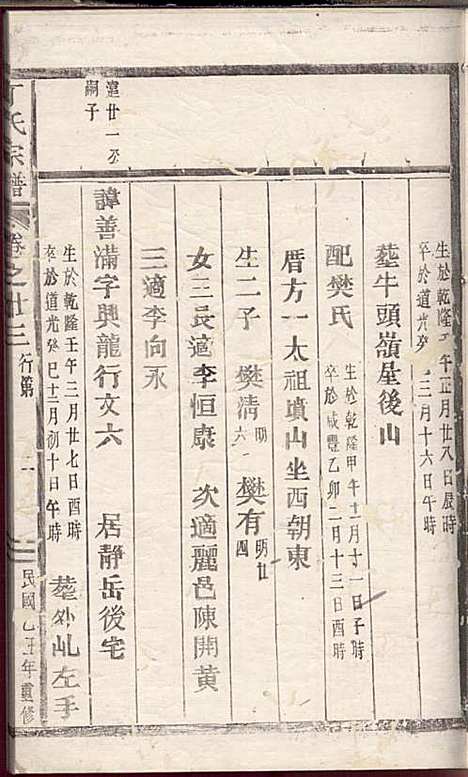 生於乾隆 午正月廿八日辰時
卒於道光癸 三月十六日午時
塟牛頭嶺屋後山
配樊氏
生於乾隆甲午十一月十一日子時
卒於咸豐乙卯二月十三日酉時
厝方一太祖墳山坐西朝東
生二子 樊清 明六一 樊有 明廿四
女三長適李恒康 次適麗邑陳開黃
三適李向永
遠廿一公
嗣子
諱善滿字興龍行文六 居靜岳後宅
生於乾隆壬午三月廿七日酉時
卒於道光癸巳十二月初十日午時
塟外屾左手
丁氏宗譜 卷之廿三 行第 民國乙丑年重修